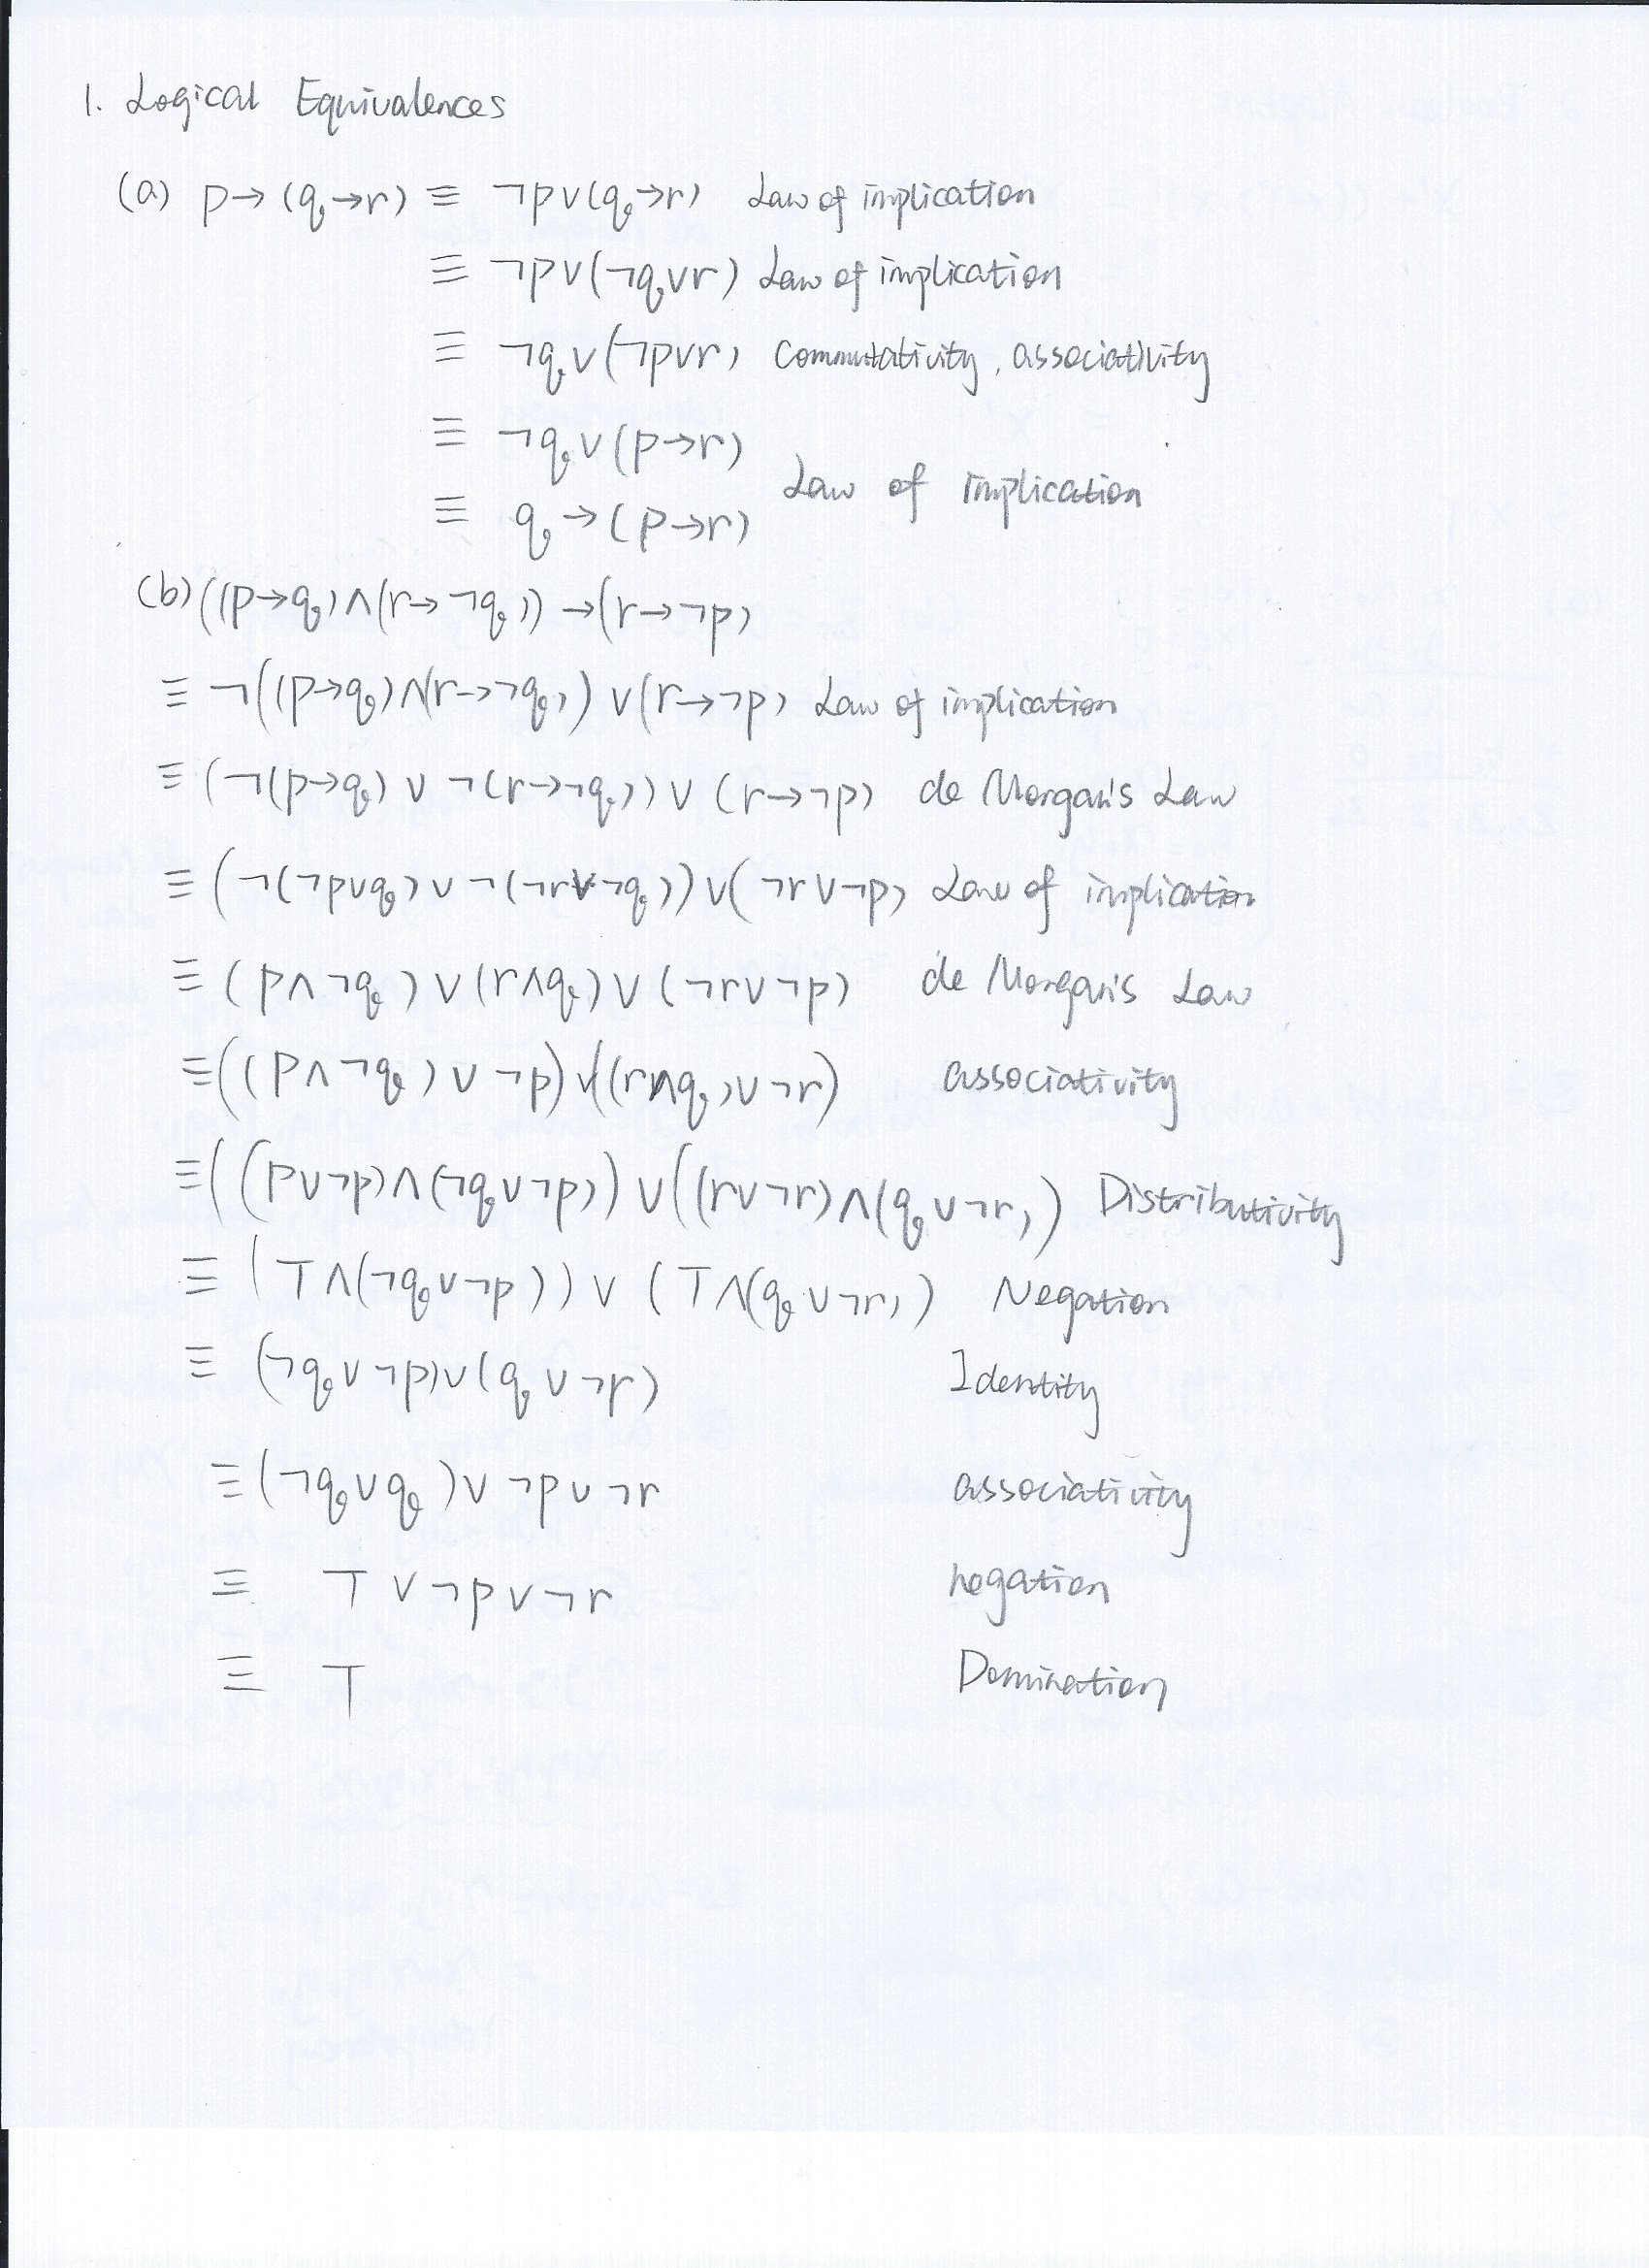 1. Logical Equivalences
(a) p→(q→r) ≡ ¬p∨(q→r) Law of implication
≡ ¬p∨(¬q∨r) Law of implication
≡ ¬q∨(¬p∨r) Commutativity, associativity
≡ ¬q∨(p→r)
Law of implication
≡ q→(p→r)
(b) ((p→q)∧(r→¬q))→(r→¬p)
≡ ¬((p→q)∧(r→¬q))∨(r→¬p) Law of implication
≡ (¬(p→q)∨¬(r→¬q))∨(r→¬p) de Morgan's Law
≡ (¬(¬p∨q)∨¬(¬r∨¬q))∨(¬r∨¬p) Law of implication
≡ (p∧¬q)∨(r∧q)∨(¬r∨¬p) de Morgan's Law
≡ ((p∧¬q)∨¬p)∨((r∧q)∨¬r) associativity
≡ ((p∨¬p)∧(¬q∨¬p))∨((r∨¬r)∧(q∨¬r)) Distributivity
≡ (T∧(¬q∨¬p))∨(T∧(q∨¬r)) Negation
≡ (¬q∨¬p)∨(q∨¬r) Identity
≡ (¬q∨q)∨¬p∨¬r associativity
≡ T∨¬p∨¬r negation
≡ T Domination